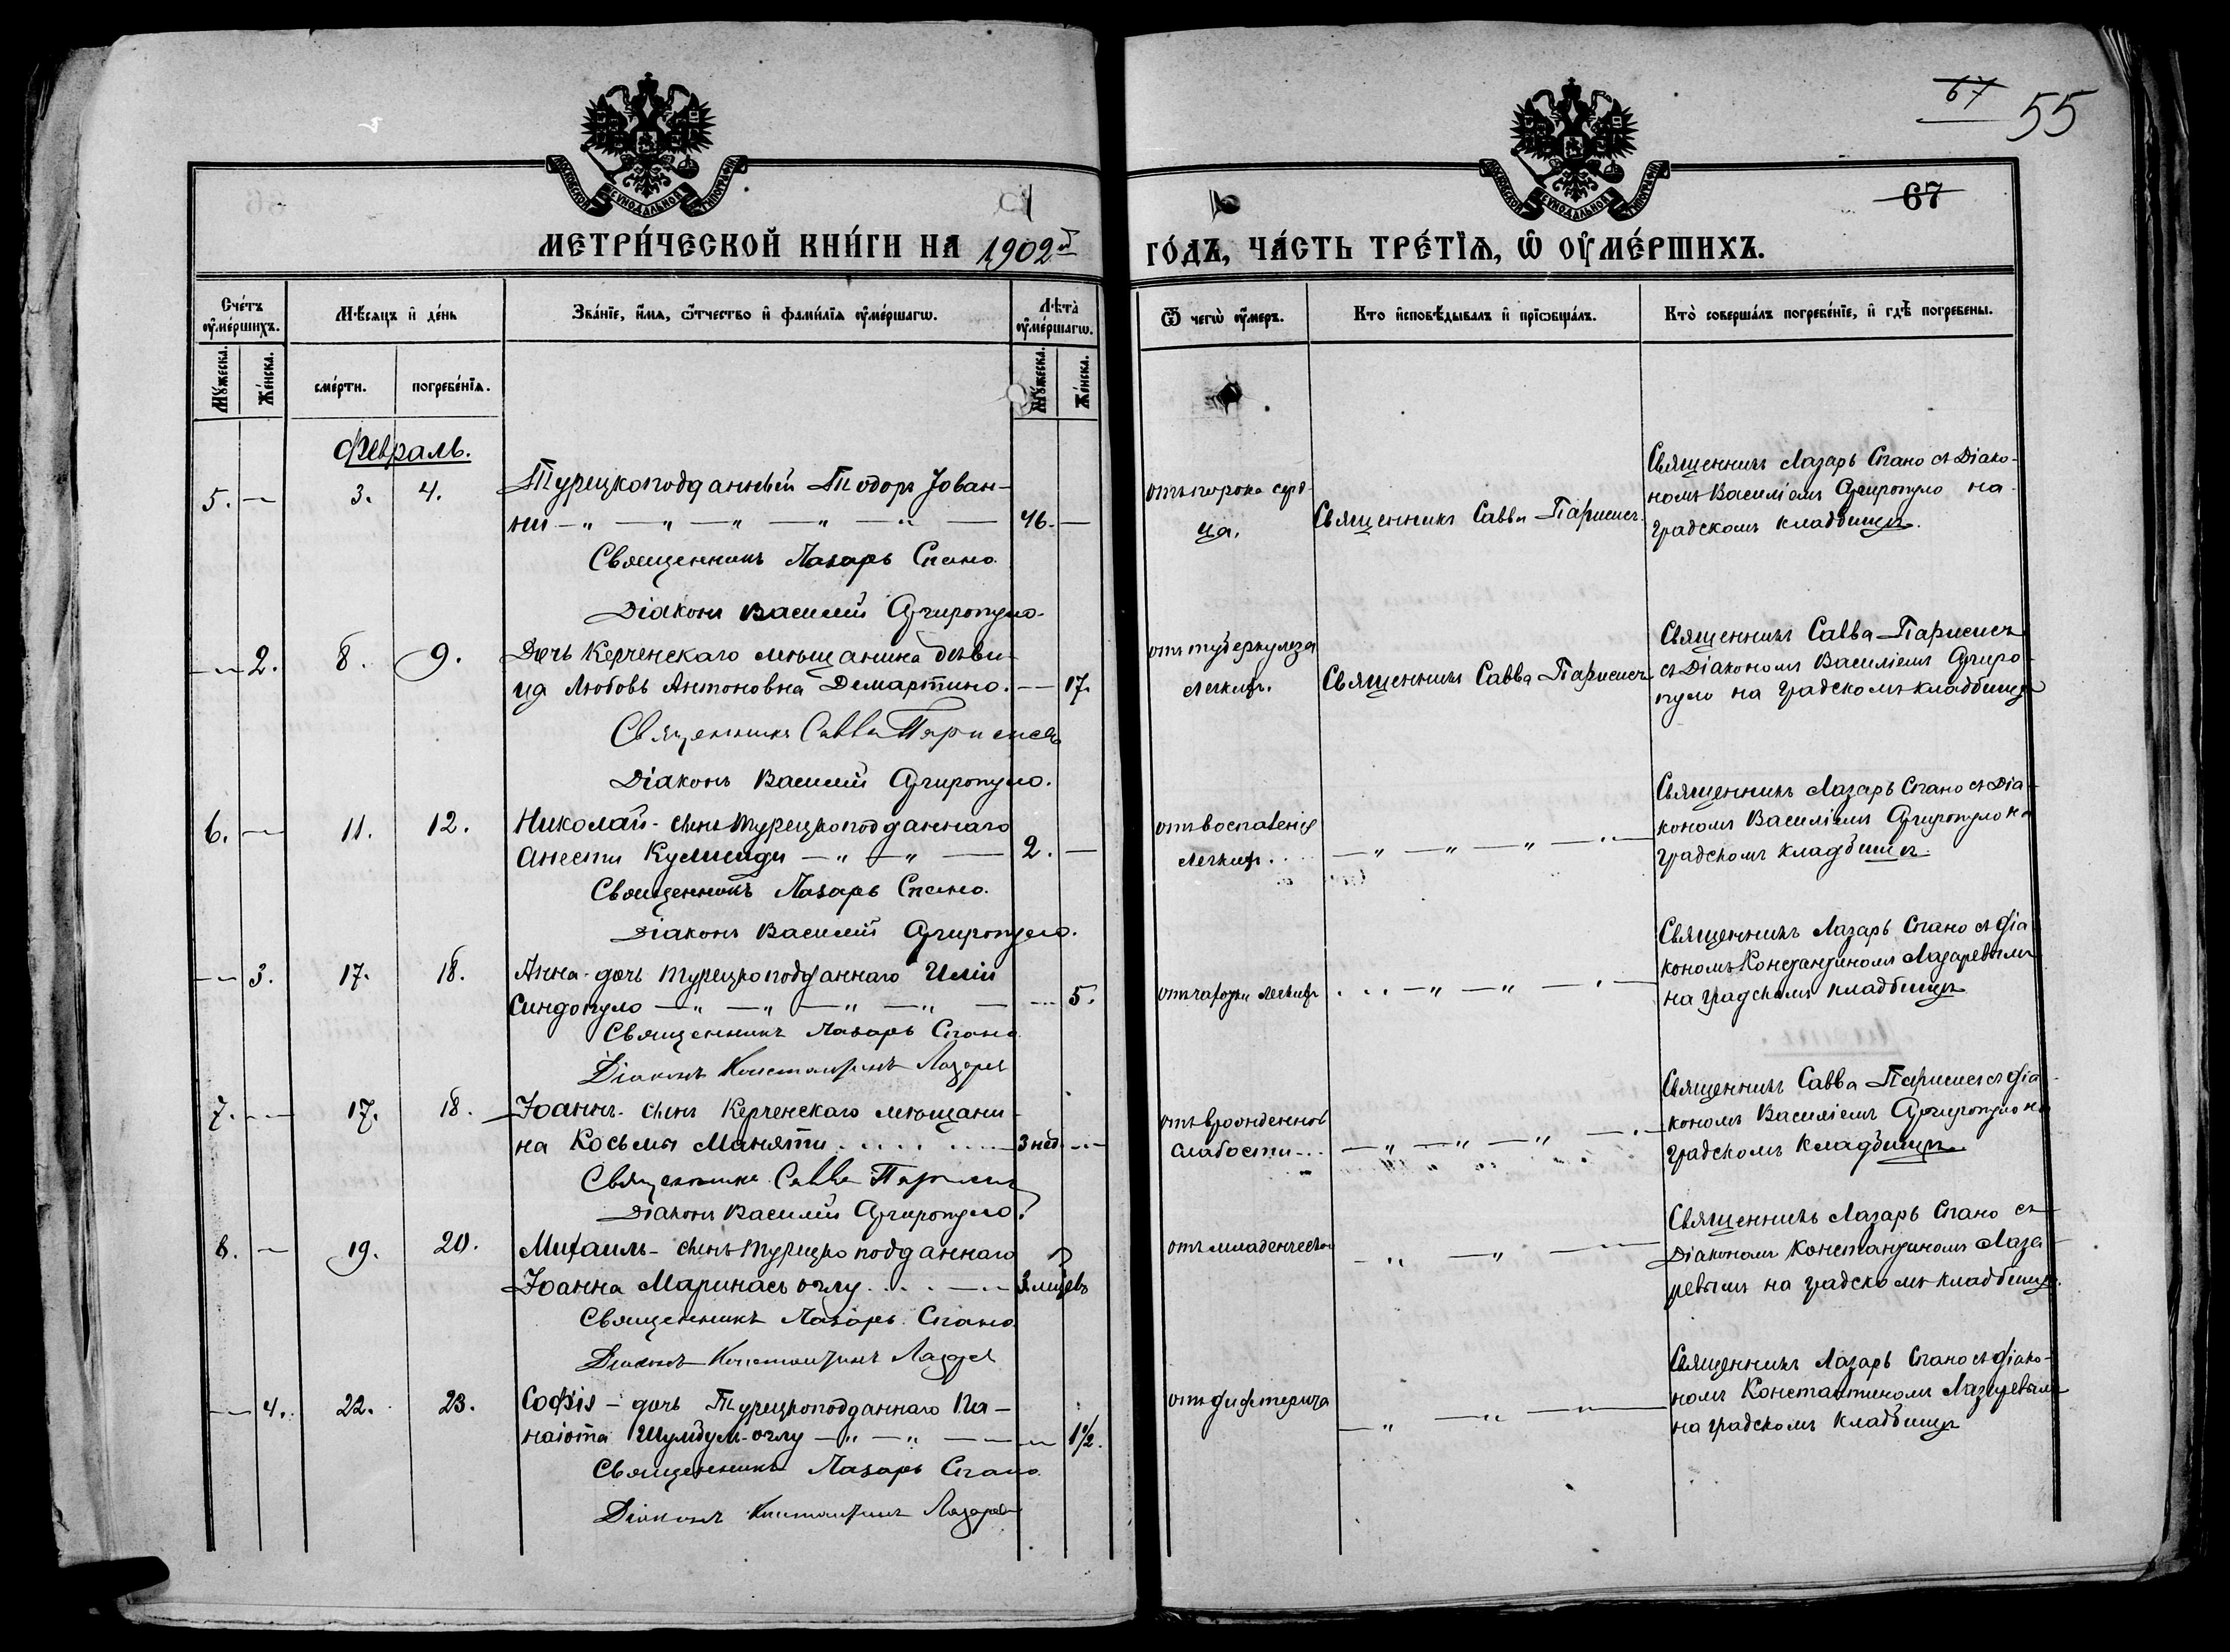 67 55
67
МОСКОВСКОЙ СѴНОДАЛЬНОЙ ТИПОГРАФІИ
МОСКОВСКОЙ СѴНОДАЛЬНОЙ ТИПОГРАФІИ
МЕТРИ́ЧЕСКОЙ КНИ́ГИ НА 1902й ГО́ДЪ, ЧА́СТЬ ТРЕ́ТІѦ, Ѡ ОУМЕ́РШИХЪ.
Сче́тъ оуме́ршихъ.
Мѣ́сяцъ и де́нь
Зва́ніе, и́мя, о́тчество и фами́лія оуме́ршагѡ.
Лѣта̀ оуме́ршагѡ.
Мꙋ́жеска.
Же́нска.
сме́рти.
погребе́нїѧ.
Мꙋ́жеска.
Же́нска.
Ѿ чегѡ̀ оу́меръ.
Кто исповѣ́дывалъ и прїѡбща́лъ.
Кто̀ соверша́лъ погребе́нїе, и гдѣ̀ погребены.
Февраль.
5. — 3. 4. Турецкоподданный Тодоръ Іован-
ни — " — " — " — " — " — 46. —
Священникъ Лазарь Спано.
Діаконъ Василій Аргиропуло.
отъ порока серд-
ца.
Священникъ Савва Парисисъ.
Священникъ Лазарь Спано съ Діако-
номъ Василіемъ Аргиропуло на
градскомъ кладбищѣ.
— 2. 8. 9. Дочь Керченскаго мѣщанина дѣви-
ца Любовь Антоновна Демартино. — 17.
Священникъ Савва Парисисъ
Діаконъ Василій Аргиропуло.
отъ туберкулеза
легкихъ.
Священникъ Савва Парисисъ
Священникъ Савва Парисисъ
съ Діакономъ Василіемъ Аргиро-
пуло на градскомъ кладбищѣ
6. — 11. 12. Николай - сынъ турецкоподданнаго
Анести — " — " — 2. —
Священникъ Лазарь Спано.
Діаконъ Василій Аргиропуло.
отъ воспаленія
легкихъ.
— " — " — " — " —
Священникъ Лазарь Спано съ Діа-
кономъ Василіемъ Аргиропуло на
градскомъ кладбищѣ.
— 3. 17. 18. Анна - дочь турецкоподданнаго Иліи
Синдопуло — " — " — " — " — 5.
Священникъ Лазарь Спано
Діаконъ Константинъ Лазаревъ
отъ чахотки легкихъ
— " — " —
Священникъ Лазарь Спано съ діа-
кономъ Константиномъ Лазаревымъ
на градскомъ кладбищѣ
7. — 17. 18. Іоаннъ - сынъ Керченскаго мѣщани-
на Косьмы Маняти . . . . . — 3 нед. —
Священникъ Савва Парисисъ
Діаконъ Василій Аргиропуло.
отъ врожденной
слабости
— " — " — " — " —
Священникъ Савва Парисисъ съ діа-
кономъ Василіемъ Аргиропуло на
градскомъ кладбищѣ
8. — 19. 20. Михаилъ - сынъ турецкоподданнаго
Іоанна Маринась оглу . . . . — 3 мцевъ
Священникъ Лазарь Спано
Діаконъ Константинъ Лазаревъ
отъ младенческой
— " — " —
Священникъ Лазарь Спано съ
Діакономъ Константиномъ Лаза-
ревымъ на градскомъ кладбищѣ.
— 4. 22. 23. Софія - дочь Турецкоподданнаго Па-
наіота — " — " — 1½.
Священникъ Лазарь Спано
Діаконъ Константинъ Лазаревъ
отъ дифтерита
— " — " — " —
Священникъ Лазарь Спано съ діако-
номъ Константиномъ Лазаревымъ
на градскомъ кладбищѣ